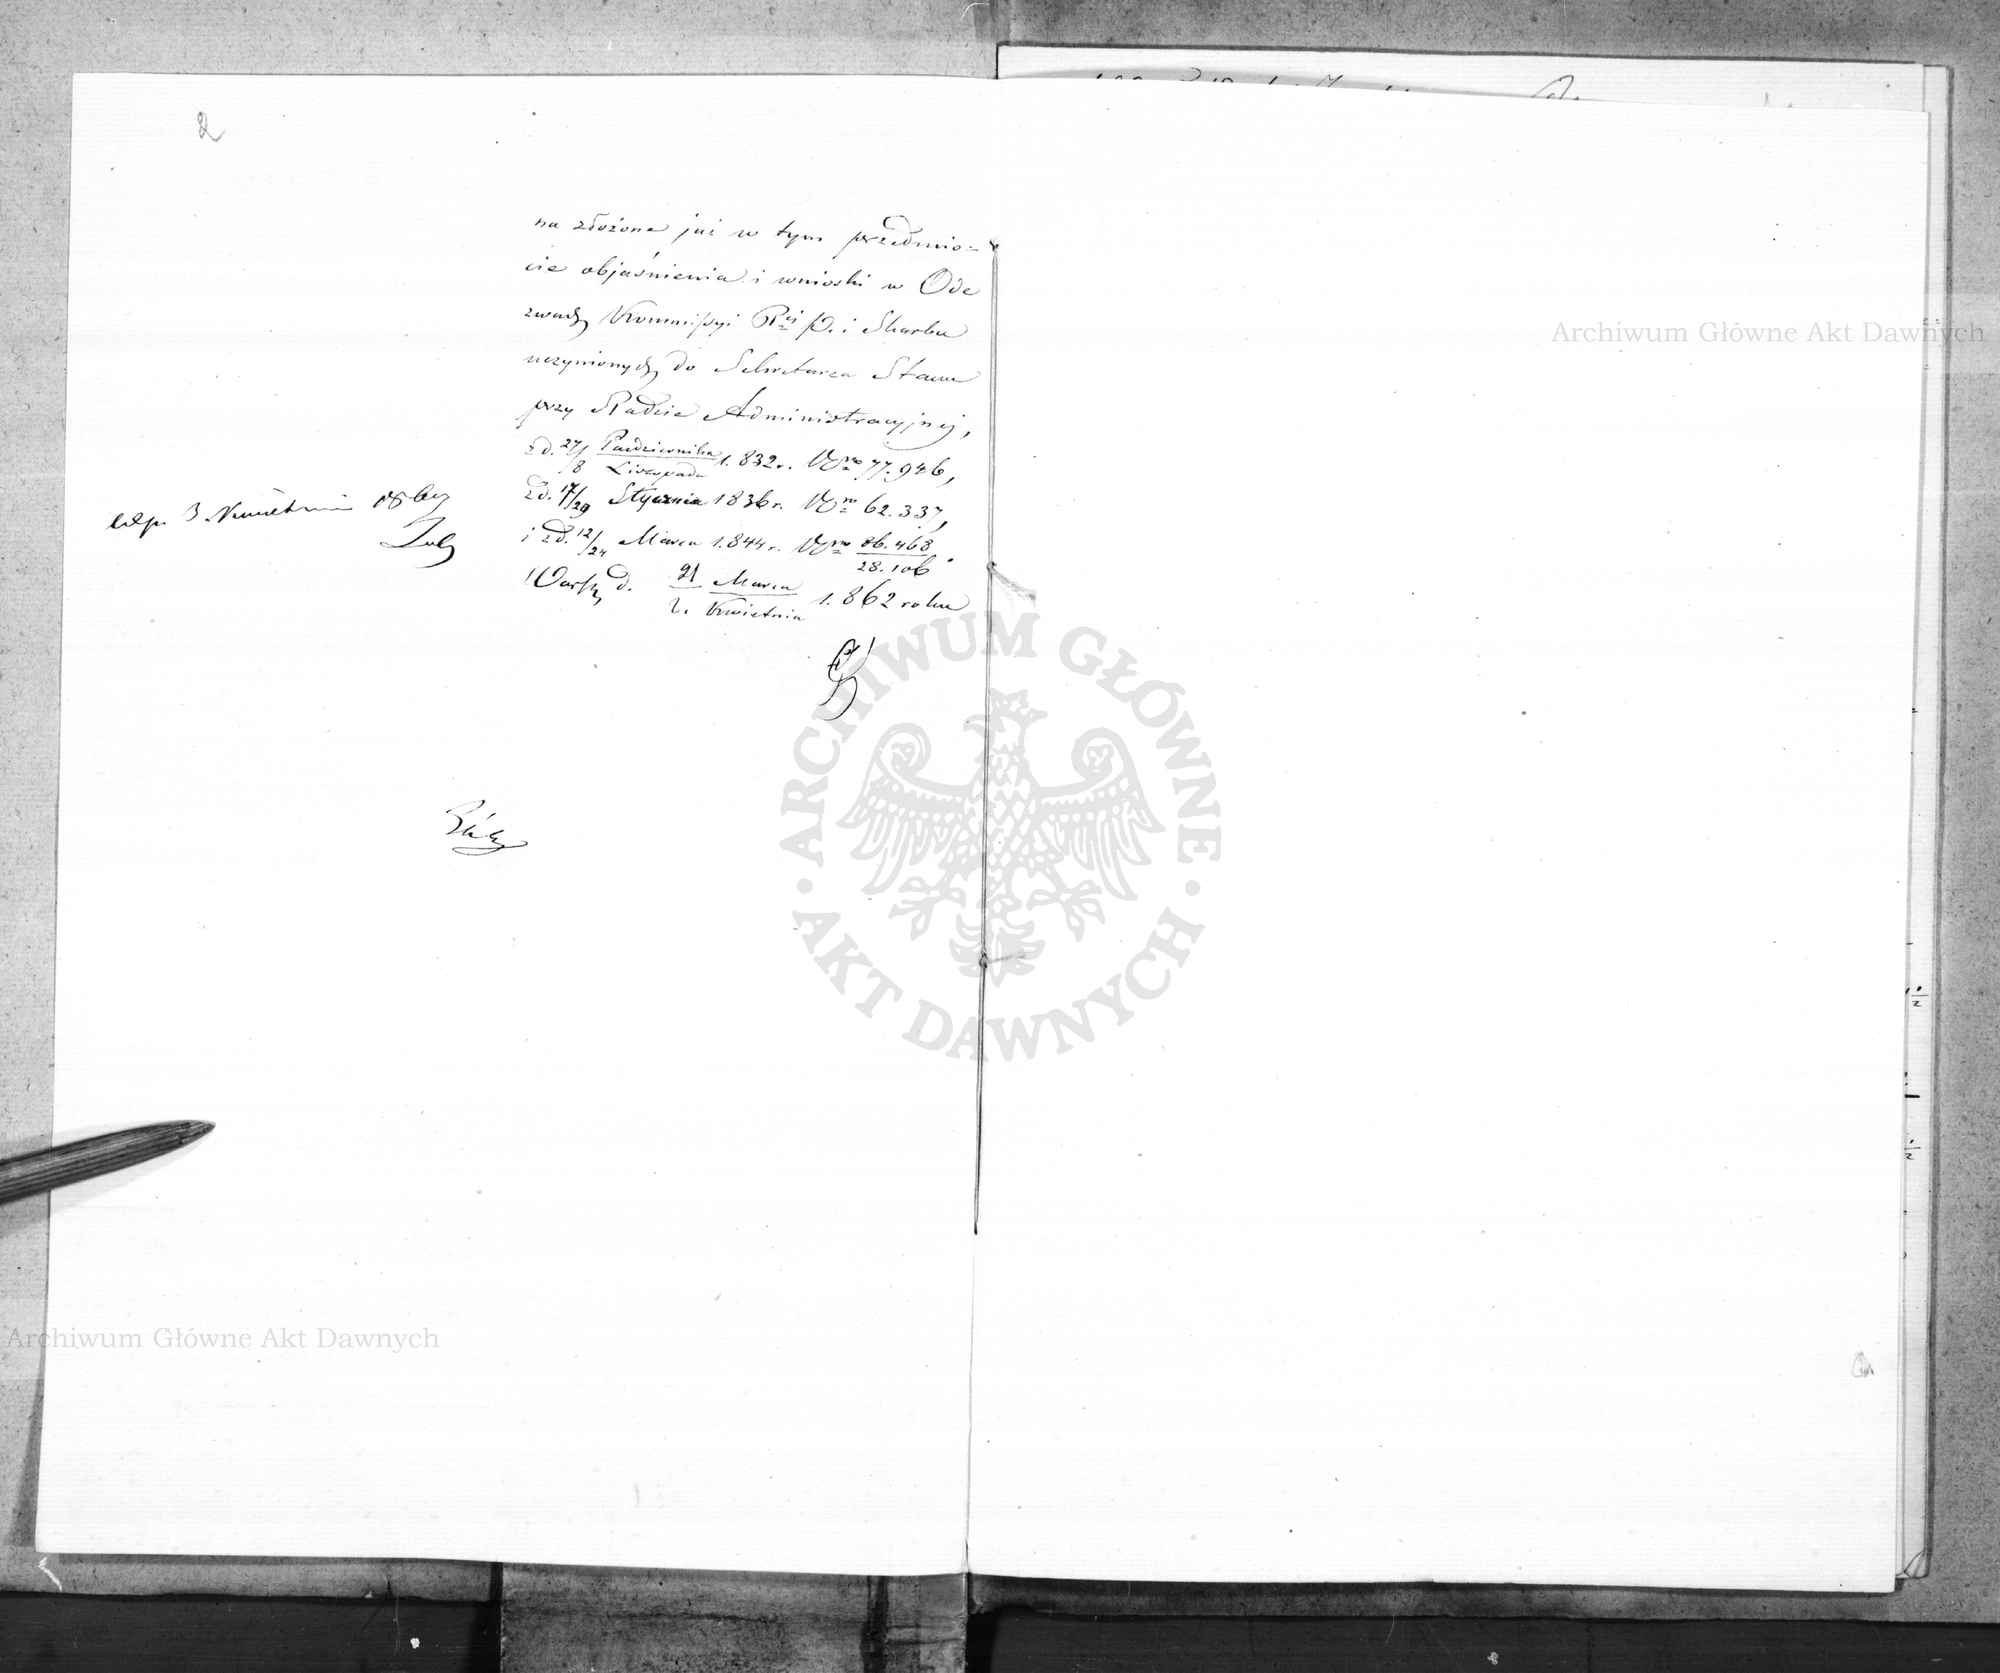 2
na złożone już w tym przedmio=
cie objaśnienia i wnioski w Ode
zwach Kommissyi R.ej P. i Skarbu
uczynionych do Sekretarza Stanu
przy Radzie Administracyjnej,
z d. 27/8 Października/Listopada 1.832 r. Nro 77.946,
z d. 17/29 Stycznia 1836 r. Nro 62.337,
i z d. 12/24 Marca 1.844 r. Nro 86.468/28.106.
Warsz. d. 21 Marca/2. Kwietnia 1.862 roku
exp. 3 Kwietnia 1862
Archiwum Główne Akt Dawnych
ARCHIWUM GŁÓWNE · AKT DAWNYCH ·
Archiwum Główne Akt Dawnych